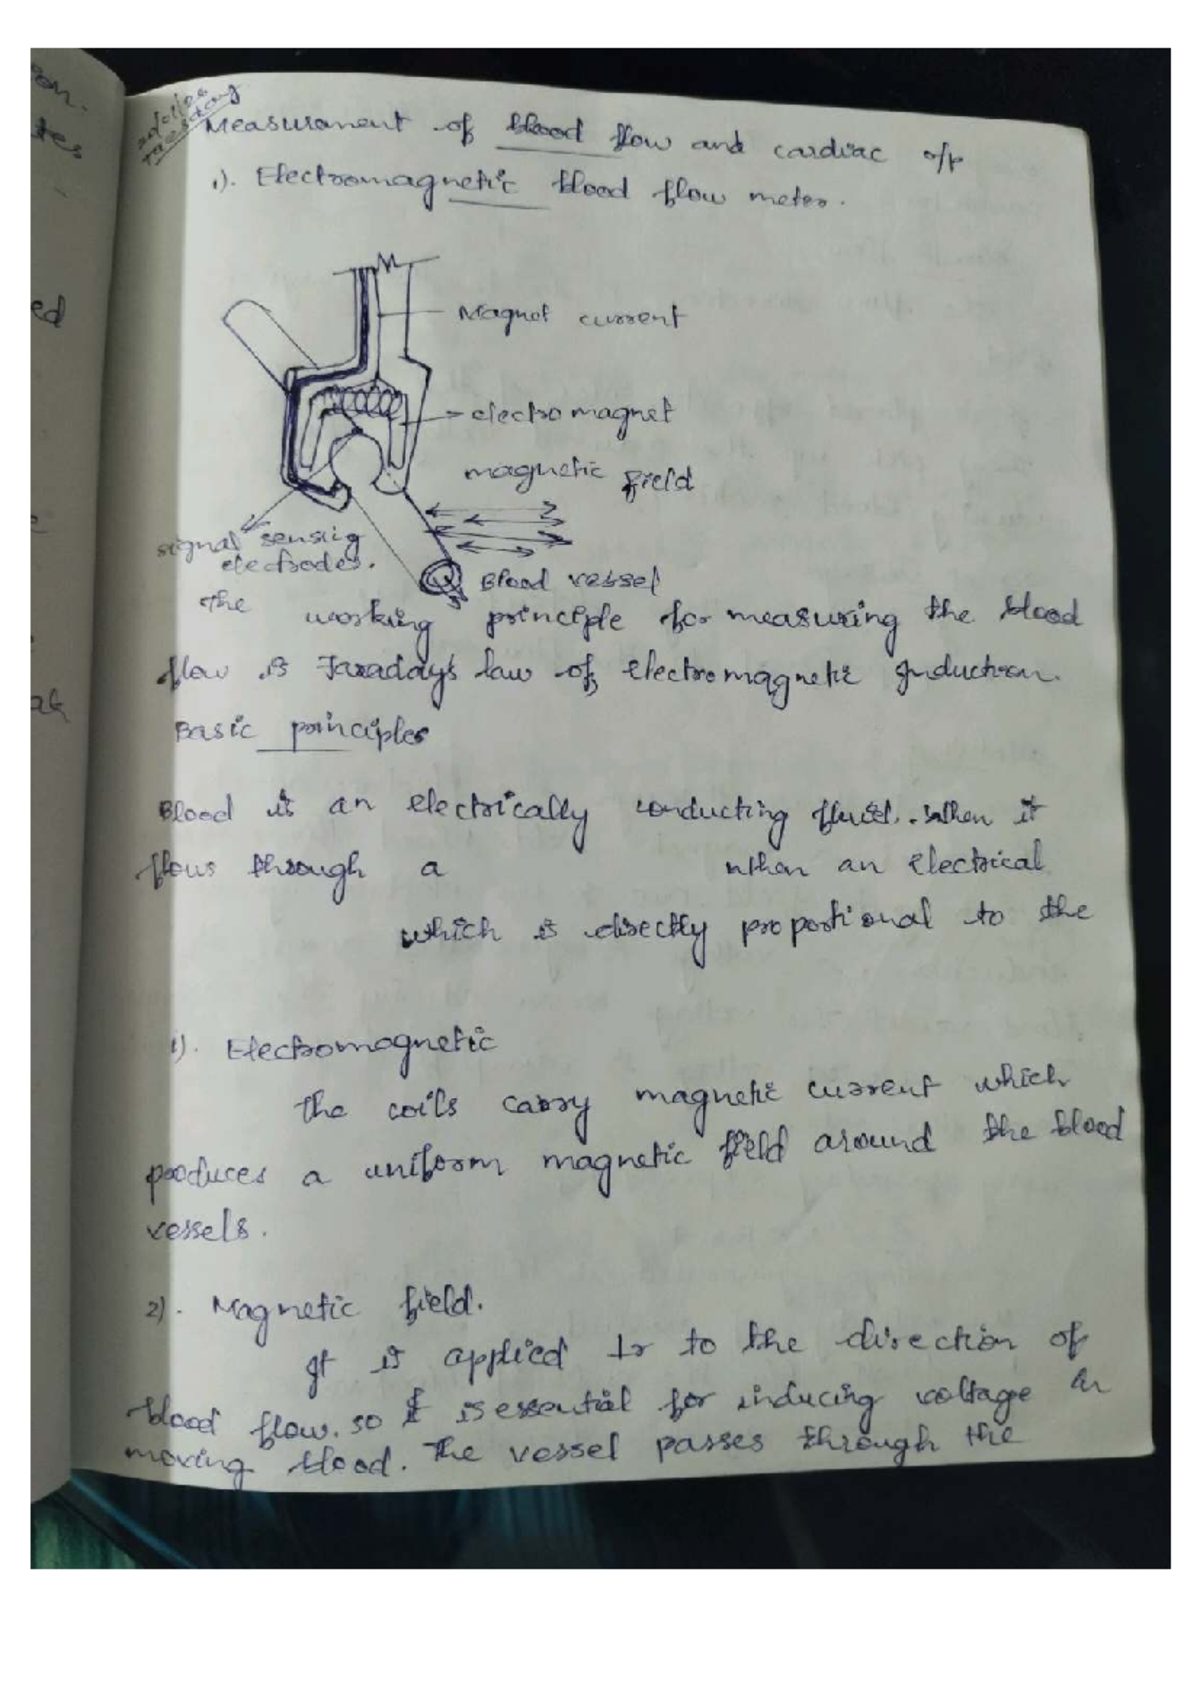 Tuesday
Measurament of blood flow and cardiac o/p
1). Electromagnetic blood flow meter.
Magnet current
electro magnet
magnetic field
signal sensing
electrodes.
Blood vessel
The working principle for measuring the blood
flow is Faraday's law of electromagnetic Induction.
Basic principles
Blood is an electrically conducting fluid. When it
flows through a when an electrical
which is directly proportional to the
1). Electromagnetic
The coils carry magnetic current which
produces a uniform magnetic field around the blood
vessels.
2). Magnetic field.
It is applied ⊥r to the direction of
blood flow. so it is essential for inducing voltage in
moving blood. The vessel passes through the
on.
tes
ed
ak